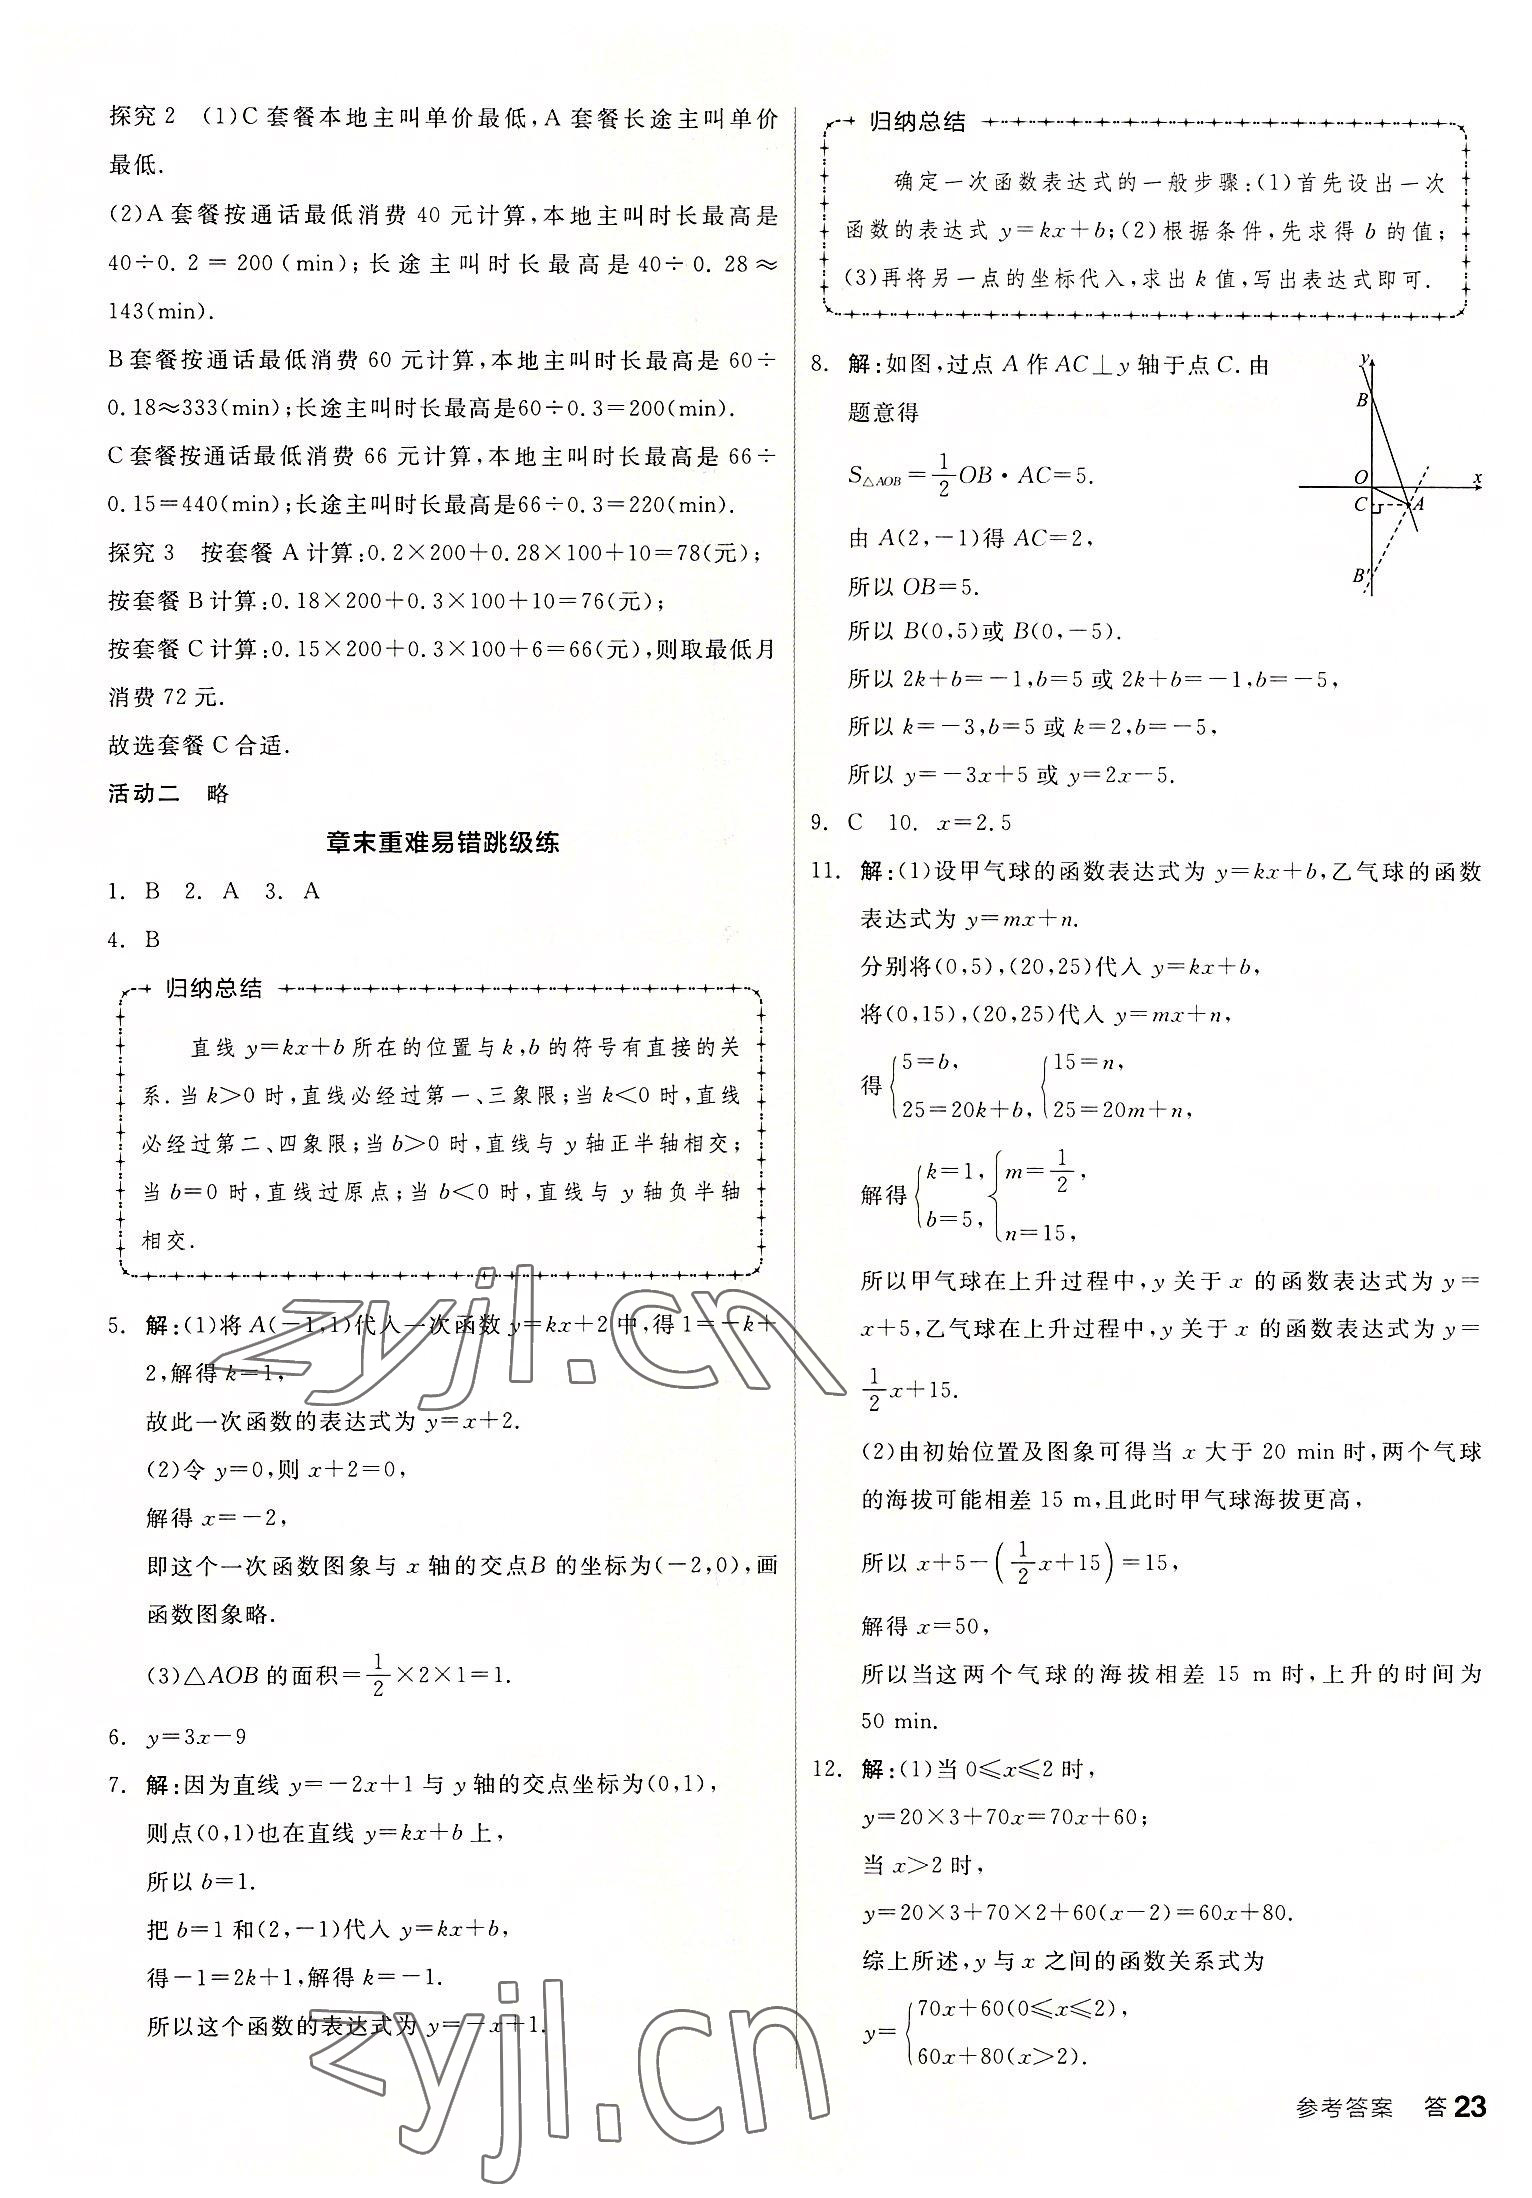 探究 2　(1)C 套餐本地主叫单价最低,A 套餐长途主叫单价
最低.
(2)A 套餐按通话最低消费 40 元计算,本地主叫时长最高是
40÷0.2=200(min);长途主叫时长最高是40÷0.28≈
143(min).
B 套餐按通话最低消费 60 元计算,本地主叫时长最高是 60÷
0.18≈333(min);长途主叫时长最高是60÷0.3=200(min).
C 套餐按通话最低消费 66 元计算,本地主叫时长最高是 66÷
0.15=440(min);长途主叫时长最高是66÷0.3=220(min).
探究 3　按套餐 A 计算:0.2×200+0.28×100+10=78(元);
按套餐 B 计算:0.18×200+0.3×100+10=76(元);
按套餐 C 计算:0.15×200+0.3×100+6=66(元),则取最低月
消费 72 元.
故选套餐 C 合适.
活动二　略
章末重难易错跳级练
1. B　2. A　3. A
4. B
归纳总结
直线 y=kx+b 所在的位置与 k,b 的符号有直接的关
系.当 k>0 时,直线必经过第一、三象限;当 k<0 时,直线
必经过第二、四象限;当 b>0 时,直线与 y 轴正半轴相交;
当 b=0 时,直线过原点;当 b<0 时,直线与 y 轴负半轴
相交.
5. 解:(1)将 A(-1,1)代入一次函数 y=kx+2 中,得 1=-k+
2,解得 k=1,
故此一次函数的表达式为 y=x+2.
(2)令 y=0,则 x+2=0,
解得 x=-2,
即这个一次函数图象与 x 轴的交点B 的坐标为(-2,0),画
函数图象略.
(3)△AOB 的面积=1/2×2×1=1.
6. y=3x-9
7. 解:因为直线 y=-2x+1 与 y 轴的交点坐标为(0,1),
则点(0,1)也在直线 y=kx+b 上,
所以 b=1.
把 b=1 和(2,-1)代入 y=kx+b,
得-1=2k+1,解得 k=-1.
所以这个函数的表达式为 y=-x+1.
归纳总结
确定一次函数表达式的一般步骤:(1)首先设出一次
函数的表达式 y=kx+b;(2)根据条件,先求得 b 的值;
(3)再将另一点的坐标代入,求出 k 值,写出表达式即可.
8. 解:如图,过点 A 作 AC⊥y 轴于点 C.由
题意得
S△AOB=1/2OB·AC=5.
由 A(2,-1)得 AC=2,
所以 OB=5.
所以 B(0,5)或 B(0,-5).
所以 2k+b=-1,b=5 或 2k+b=-1,b=-5,
所以 k=-3,b=5 或 k=2,b=-5,
所以 y=-3x+5 或 y=2x-5.
y
B
O
x
C
A
B′
9. C　10. x=2.5
11. 解:(1)设甲气球的函数表达式为 y=kx+b,乙气球的函数
表达式为 y=mx+n.
分别将(0,5),(20,25)代入 y=kx+b,
将(0,15),(20,25)代入 y=mx+n,
得{5=b, 25=20k+b, {15=n, 25=20m+n,
解得{k=1, b=5, {m=1/2, n=15,
所以甲气球在上升过程中,y 关于 x 的函数表达式为 y=
x+5,乙气球在上升过程中,y 关于 x 的函数表达式为 y=
1/2x+15.
(2)由初始位置及图象可得当 x 大于 20 min 时,两个气球
的海拔可能相差 15 m,且此时甲气球海拔更高,
所以 x+5-(1/2x+15)=15,
解得 x=50,
所以当这两个气球的海拔相差 15 m 时,上升的时间为
50 min.
12. 解:(1)当 0≤x≤2 时,
y=20×3+70x=70x+60;
当 x>2 时,
y=20×3+70×2+60(x-2)=60x+80.
综上所述,y 与 x 之间的函数关系式为
y={70x+60(0≤x≤2), 60x+80(x>2).
zyjl.cn
zyjl.cn
参考答案　答 23